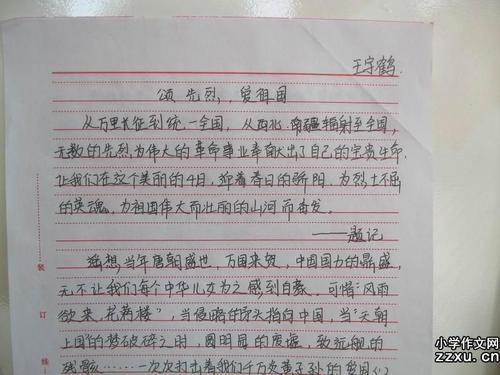 王宇鹤
颂 先烈,爱祖国
从万里长征到统一全国,从西北、南疆辐射至全国,
无数的先烈为伟大的革命事业奉献出了自己的宝贵生命。
让我们在这个美丽的4日,迎着春日的骄阳,为烈士不屈
的英魂,为祖国伟大而壮丽的山河而奋发。
——题记
遥想,当年唐朝盛世,万国来贺,中国国力的鼎盛,
无不让我们每个中华儿女为之感到自豪。可惜"风雨
欲来,花满楼",当侵略的矛头指向中国,当"天朝
上国"的梦破碎之时,圆明园的废墟,致远舰的
残骸……一次次打击着我们千万炎黄子孙的爱国
装
订
线
小学作文网
zzxu.cn